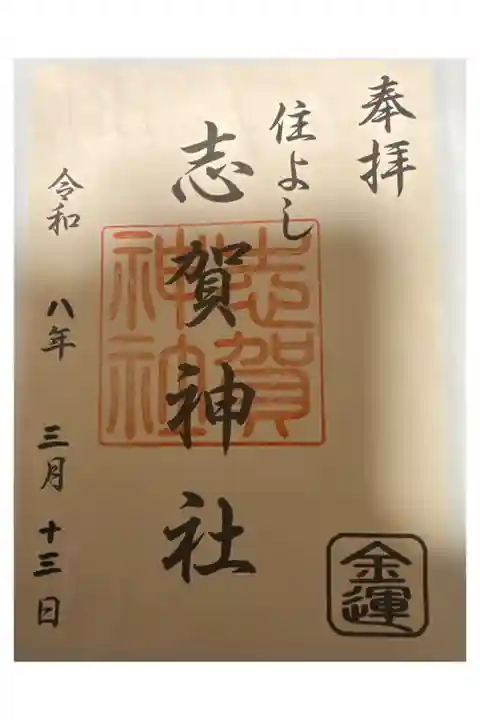 奉拝
住よし
志賀神社
志賀神社
令和 八年 三月 十三日
金運